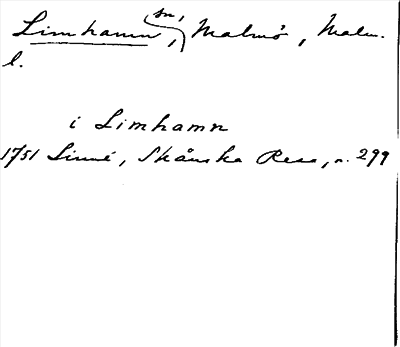 Limhamn sn, Malmö, Malm.
l.
i Limhamn
1751 Linné, Skånska Resa, s. 299